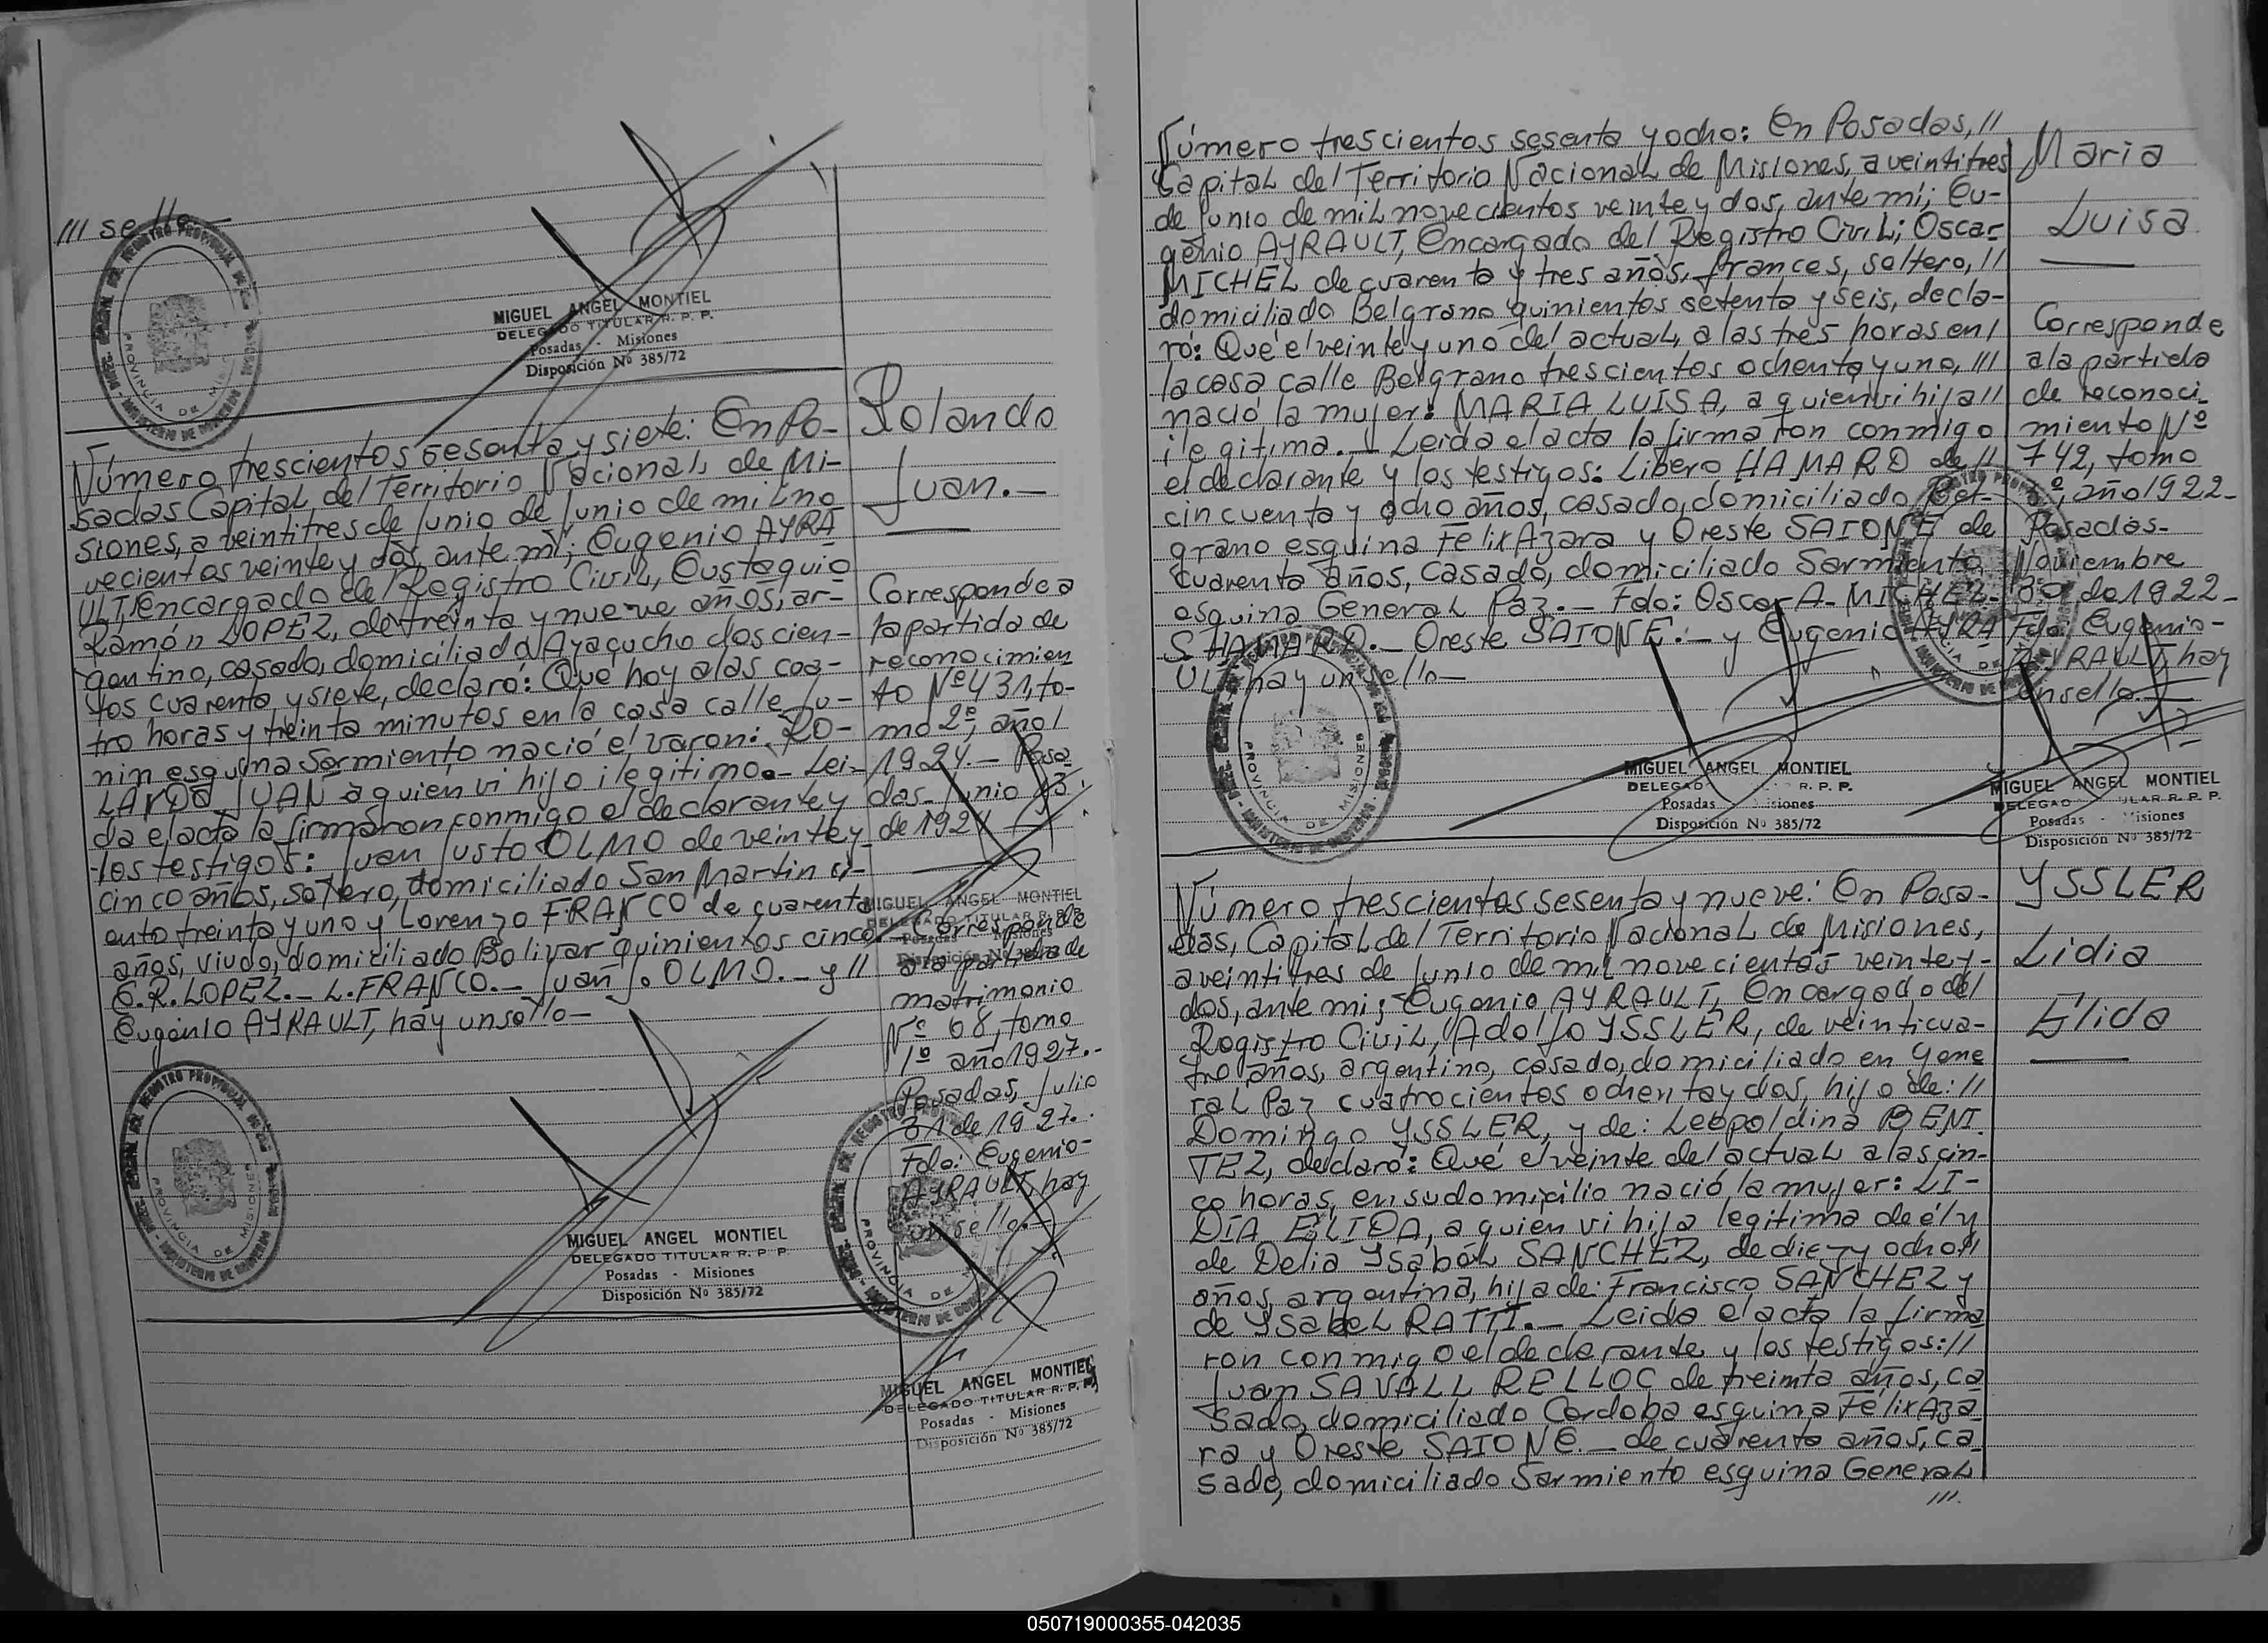 /// sello—
MIGUEL ANGEL MONTIEL
DELEGADO TITULAR R. P. P.
Posadas - Misiones
Disposición Nº 385/72
Número trescientos sesenta y siete: En Po-
sadas Capital del Territorio Nacional, de Mi-
siones, a veintitres de Junio de Junio de mil no
vecientos veinte y dos, ante mi; Eugenio AYRA
ULT, encargado del Registro Civil, Eustaquio
Ramón LOPEZ, de treinta y nueve años, ar-
gentino, casado, domiciliado Ayacucho doscien-
tos cuarenta y siete, declaró: Que hoy a las cua-
tro horas y treinta minutos en la casa calle Ju-
nin esquina Sarmiento nació el varon: RO-
LANDO JUAN a quien vi hijo ilegitimo.- Lei-
da el acta la firmaron conmigo el declarante y
los testigos: Juan Justo OLMO de veinte y
cinco años, soltero, domiciliado San Martin ci-
ento treinta y uno y Lorenzo FRANCO de cuarenta
años, viudo, domiciliado Bolivar quinientos cinco.-
E.R. LOPEZ.- L. FRANCO.- Juan J. OLMO.- y //
Eugenio AYRAULT, hay un sello—
MIGUEL ANGEL MONTIEL
DELEGADO TITULAR R. P. P.
Posadas - Misiones
Disposición Nº 385/72
Rolando
Juan.-
Corresponde a
la partida de
reconocimien
to Nº 431, to-
mo 2º, año /
1924.- Posa
das- Junio 13
de 1924
MIGUEL ANGEL MONTIEL
DELEGADO TITULAR R. P. P.
Posadas - Misiones
Disposición Nº 385/72
Corresponde
a la partida de
matrimonio
Nº 68, tomo
1º año 1927.-
Posadas, Julio
31 de 1927.-
Fdo: Eugenio-
AYRAULT, hay
un sello.-
MIGUEL ANGEL MONTIEL
DELEGADO TITULAR R. P. P.
Posadas - Misiones
Disposición Nº 385/72
Número trescientos sesenta y ocho: En Posadas, //
Capital del Territorio Nacional de Misiones, a veintitres
de Junio de mil novecientos veinte y dos, ante mi; Eu-
genio AYRAULT, Encargado del Registro Civil; Oscar
MICHEL de cuarenta y tres años, frances, soltero, //
domiciliado Belgrano quinientos setenta y seis, decla-
ró: Que el veinte y uno del actual, a las tres horas en /
la casa calle Belgrano trescientos ochenta y uno, ///
nació la mujer: MARIA LUISA, a quien vi hija //
ilegitima.- Leida el acta la firmaron conmigo
el declarante y los testigos: Libero HAMARD de //
cincuenta y ocho años, casado, domiciliado Bel-
grano esquina Felix Azara y Oreste SAIONE de
cuarenta años, casado, domiciliado Sarmiento
esquina General Paz.- Fdo: Oscar A. MICHEL-
S. HAMARD.- Oreste SAIONE.- y Eugenio AYRA
ULT hay un sello—
MIGUEL ANGEL MONTIEL
DELEGADO R. P. P.
Posadas - Misiones
Disposición Nº 385/72
Maria
Luisa
Corresponde
a la partida
de reconoci_
miento Nº
742, tomo
año 1922-
Posadas-
Noviembre
30 de 1922-
Fdo. Eugenio-
AYRAULT, hay
un sello.-
MIGUEL ANGEL MONTIEL
DELEGADO TITULAR R. P. P.
Posadas - Misiones
Disposición Nº 385/72
Número trescientos sesenta y nueve: En Posa-
das, Capital del Territorio Nacional de Misiones,
a veintitres de Junio de mil novecientos veinte y-
dos, ante mi; Eugenio AYRAULT, Encargado del
Registro Civil, Adolfo YSSLER, de veinticua-
tro años, argentino, casado, domiciliado en Gene
ral Paz cuatrocientos ochenta y dos, hijo de: //
Domingo YSSLER, y de: Leopoldina BENI
TEZ, declaró: Que el veinte del actual a las cin-
co horas, en su domicilio nació la mujer: LI-
DIA ELIDA, a quien vi hija legitima de él y
de Delia Ysabel SANCHEZ, de diez y ocho //
años, argentina, hija de: Francisco SANCHEZ y
de Ysabel RATTI.- Leida el acta la firma
ron conmigo el declarante y los testigos: //
Juan SAVALL RELLOC de treinta años, ca
sado, domiciliado Cordoba esquina Félix Aza
ra y Oreste SAIONE.- de cuarenta años, ca
sado, domiciliado Sarmiento esquina General
///.
YSSLER
Lidia
Elida
050719000355-042035